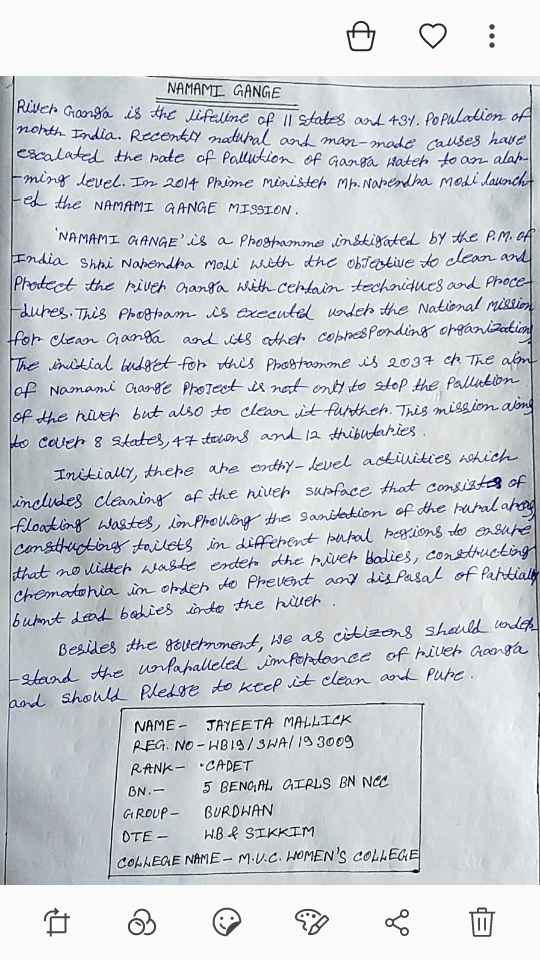 NAMAMI GANGE
River Ganga is the lifeline of 11 states and 43%. Population of
north India. Recently natural and man-made causes have
escalated the rate of Pallution of Ganga water to an alar-
-ming level. In 2014 Prime Minister Mr. Narendra Modi launch-
-ed the NAMAMI GANGE MISSION.
'NAMAMI GANGE' is a Programme instigated by the P.M. of
India Shri Narendra Modi with the objective to clean and
Protect the river Ganga with certain techniques and Proce-
-dures. This Program is executed under the National Mission
for clean Ganga and its other corresponding organization
The initial budget for this Programme is 2037 cr. The aim
of Namami Gange Project is not only to stop the Pallution
of the river but also to clean it further. This mission aims
to cover 8 states, 47 towns and 12 tributaries.
Initially, there are entry-level activities which
includes cleaning of the river surface that consists of
floating wastes, improving the sanitation of the rural areas
constructing toilets in different rural regions to ensure
that no litter waste enter the river bodies, constructing
chematoria in order to Prevent any disposal of Partially
burnt dead bodies into the river.
Besides the government, we as citizens should under-
-stand the unparalleled importance of river Ganga
and should Pledge to keep it clean and Pure.
NAME- JAYEETA MALLICK
REG. NO-WB19/SWA/193009
RANK- CADET
BN.- 5 BENGAL GIRLS BN NCC
GROUP- BURDWAN
DTE- WB & SIKKIM
COLLEGE NAME- M.U.C. WOMEN'S COLLEGE